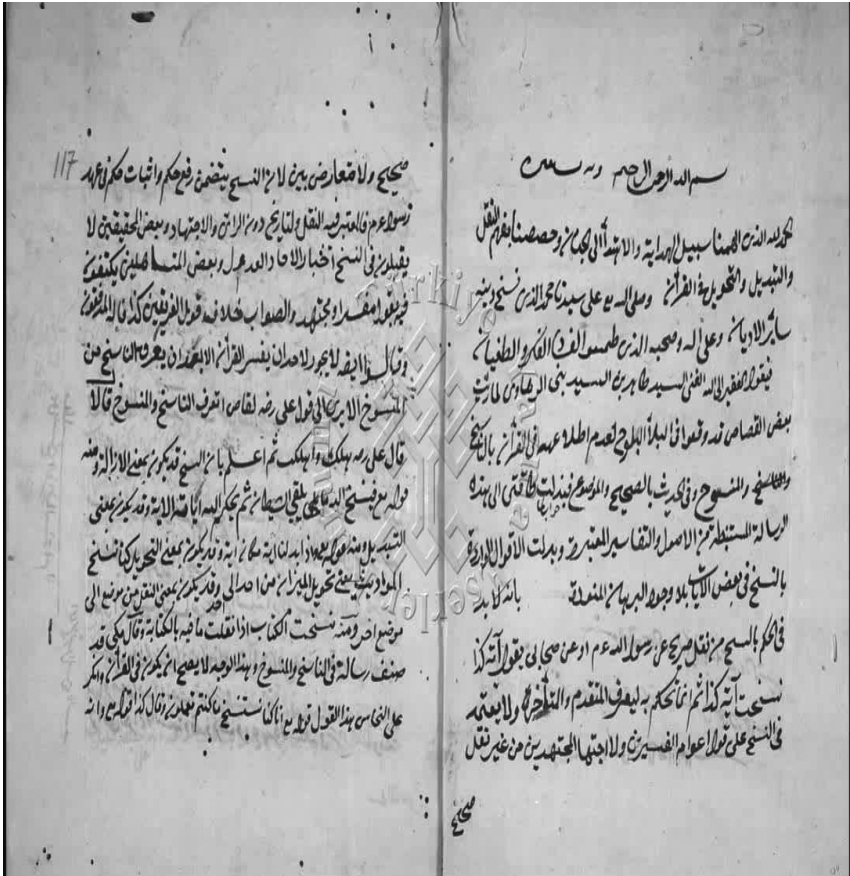 بسم الله الرحمن الرحيم وبه
الحمد لله الذي الهمنا سبيل الهداية والاهتداء الى الجنان وخصصنا بفهم النقل
والتبديل والتحويل في القرآن وصلى الله مع على سيدنا محمد الذي نسخ دينه
سائر الاديان وعلى آله وصحبه الذين طمسوا الكفر والطغيان
فيقول الفقير الى الله الغني السيد طاهر بن السيد الرهاوي لما رأيت
بعض القصاص قد وقعوا في البلاء لعدم اطلاعهم في القرآن بالناسخ
والمنسوخ وفي الحديث بالصحيح والموضوع طاقتي الى هذه
الرسالة المستنبطة من الاصول والتفاسير المعتبرة وبدلت الاقوال الواردة
بالنسخ في بعض الآيات بلا وجود البرهان بانه لا بد
في الحكم بالنسخ من نقل صريح عن رسول الله عم او عن صحابي يقول آية كذا
نسخت آية كذا ثم انما نحكم به ليعرف المتقدم والمتأخر ولا يعتمد
في النسخ على قول عوام المفسرين ولا اجتهاد المجتهدين من غير نقل
صحيح
117
صحيح ولا معارض بين لان النسخ يتضمن رفع حكم واثبات حكم في عهد
رسول عم فالمعتبر فيه النقل والتاريخ دون الرأي والاجتهاد وبعض المحققين لا
يقبلون في النسخ اخبار الآحاد العدول وبعض المتساهلين يكتفون
فيه بقول مفسر او مجتهد والصواب خلاف قول الفريقين كذا قاله
وقالوا ايضا لا يجوز لاحد ان يفسر القرآن الا بعد ان يعرف الناسخ من
المنسوخ الا يرى الى قول علي رضه لقاص اتعرف الناسخ والمنسوخ قال لا
قال علي رضه هلكت وأهلكت ثم اعلم بان النسخ قد يكون بمعنى الازالة ومنه
قوله مع فينسخ الله ما يلقي الشيطان ثم يحكم الله آياته الآية وقد يكون بمعنى
التبديل ومنه قوله مع واذا بدلنا آية مكان آية وقد يكون بمعنى التحويل كتناسخ
المواريث بمعنى تحويل الميراث من احد الى احد وقد يكون بمعنى النقل من موضع الى
موضع آخر ومنه نسخت الكتاب اذا نقلت ما فيه بالكتابة وقال مكي قد
صنف رسالة في الناسخ والمنسوخ وهذا الوجه لا يصح ان يكون في القرآن وانكر
على النحاس هذا القول قوله مع انا كنا نستنسخ ما كنتم تعملون وقال كذا قوله مع وانه